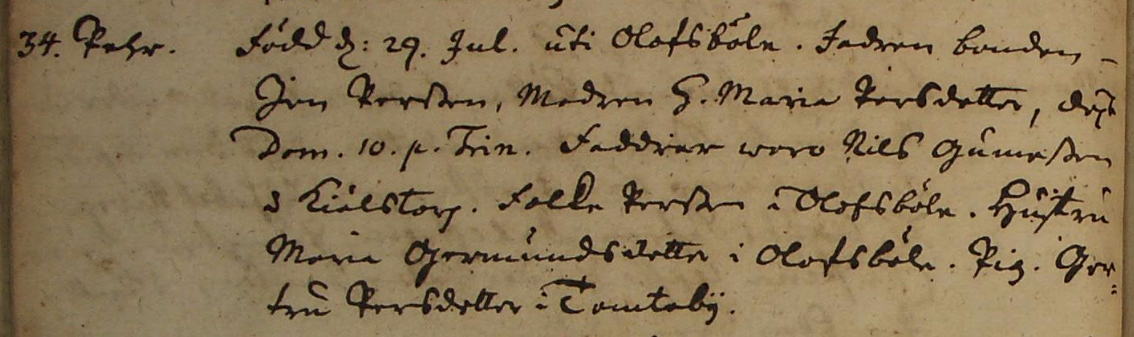 34. Pehr. Född d: 29. Jul. uti Olofsböle. Fadren bonden
Jon Perszon, Modren H. Maria Persdotter, döpt
Dom. 10. p. Trin. Faddrar woro Nils
Kiälstorp. Folke Perszon i Olofsböle. Hustru
Maria Germundsdotter i Olofsböle. Pig. Ger=
tru Persdotter i Tomteby.